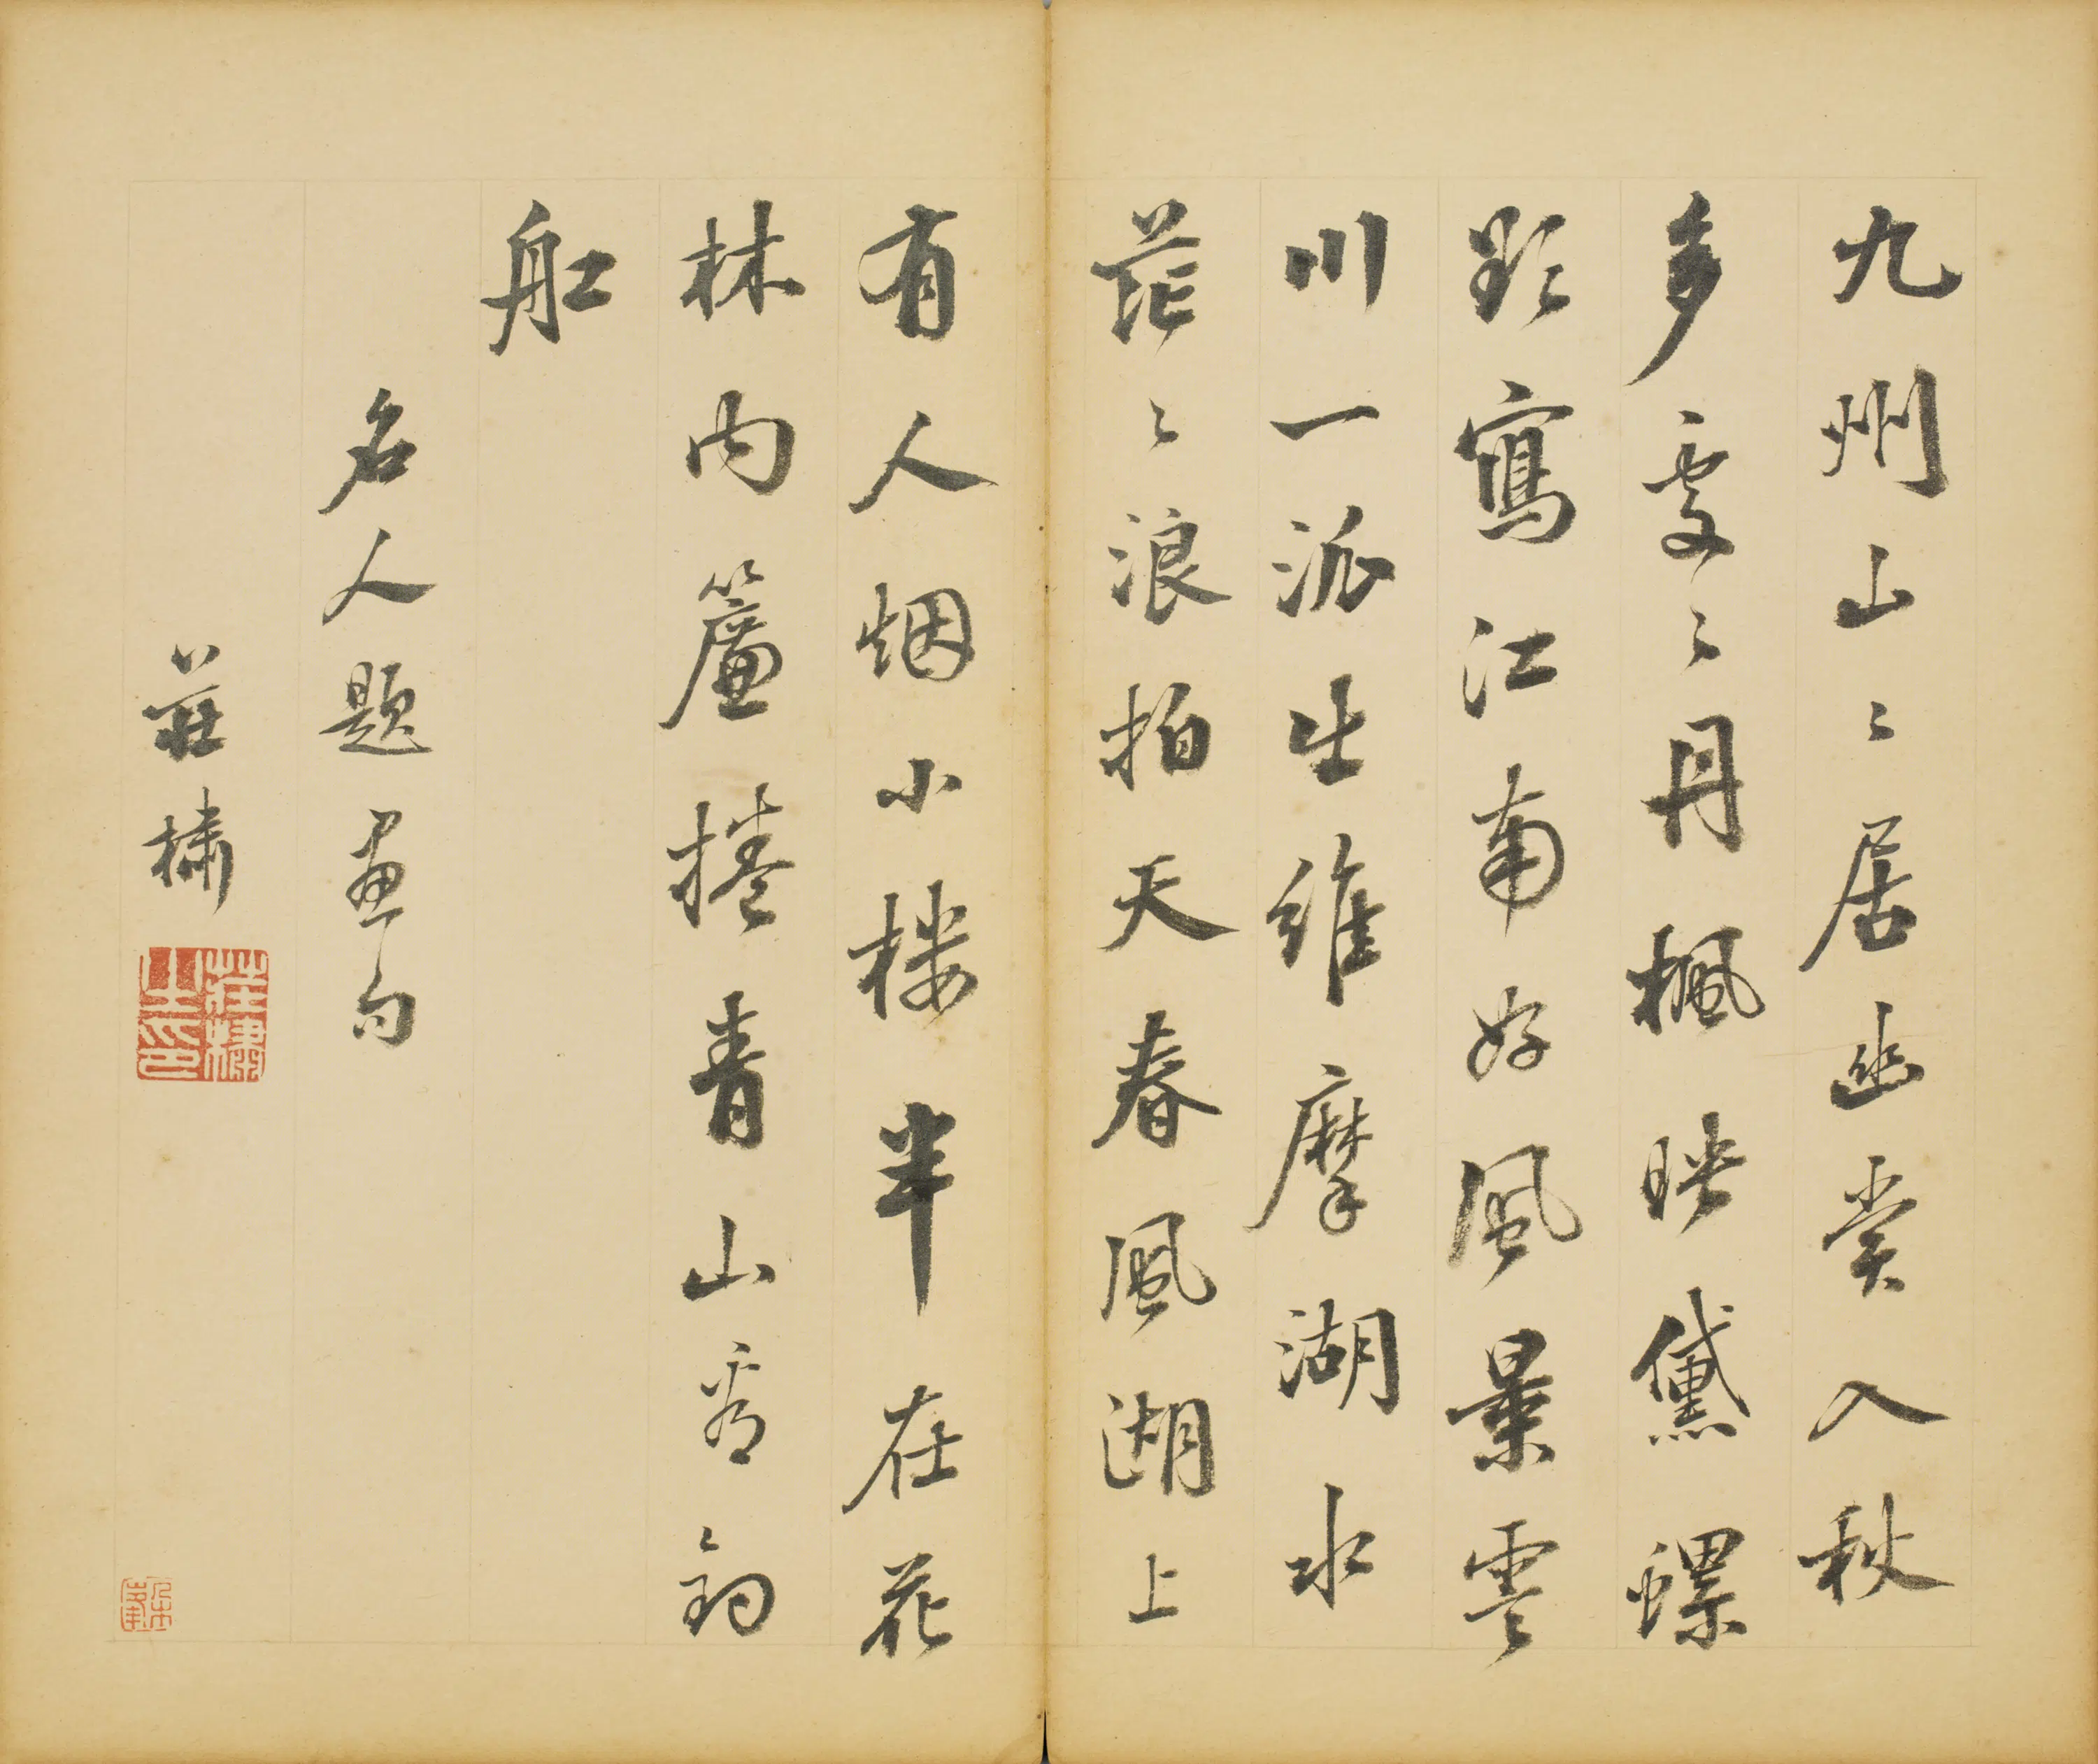 九州山々居幽賞入秋
多處々丹楓映黛螺
點寫江南好風景雲
川一派生綃摩湖水
茫々浪拍天春風湖上
有人烟小楼半在花
林内簾捲青山看釣
舡
名人題畫句
莊橚
莊橚之印